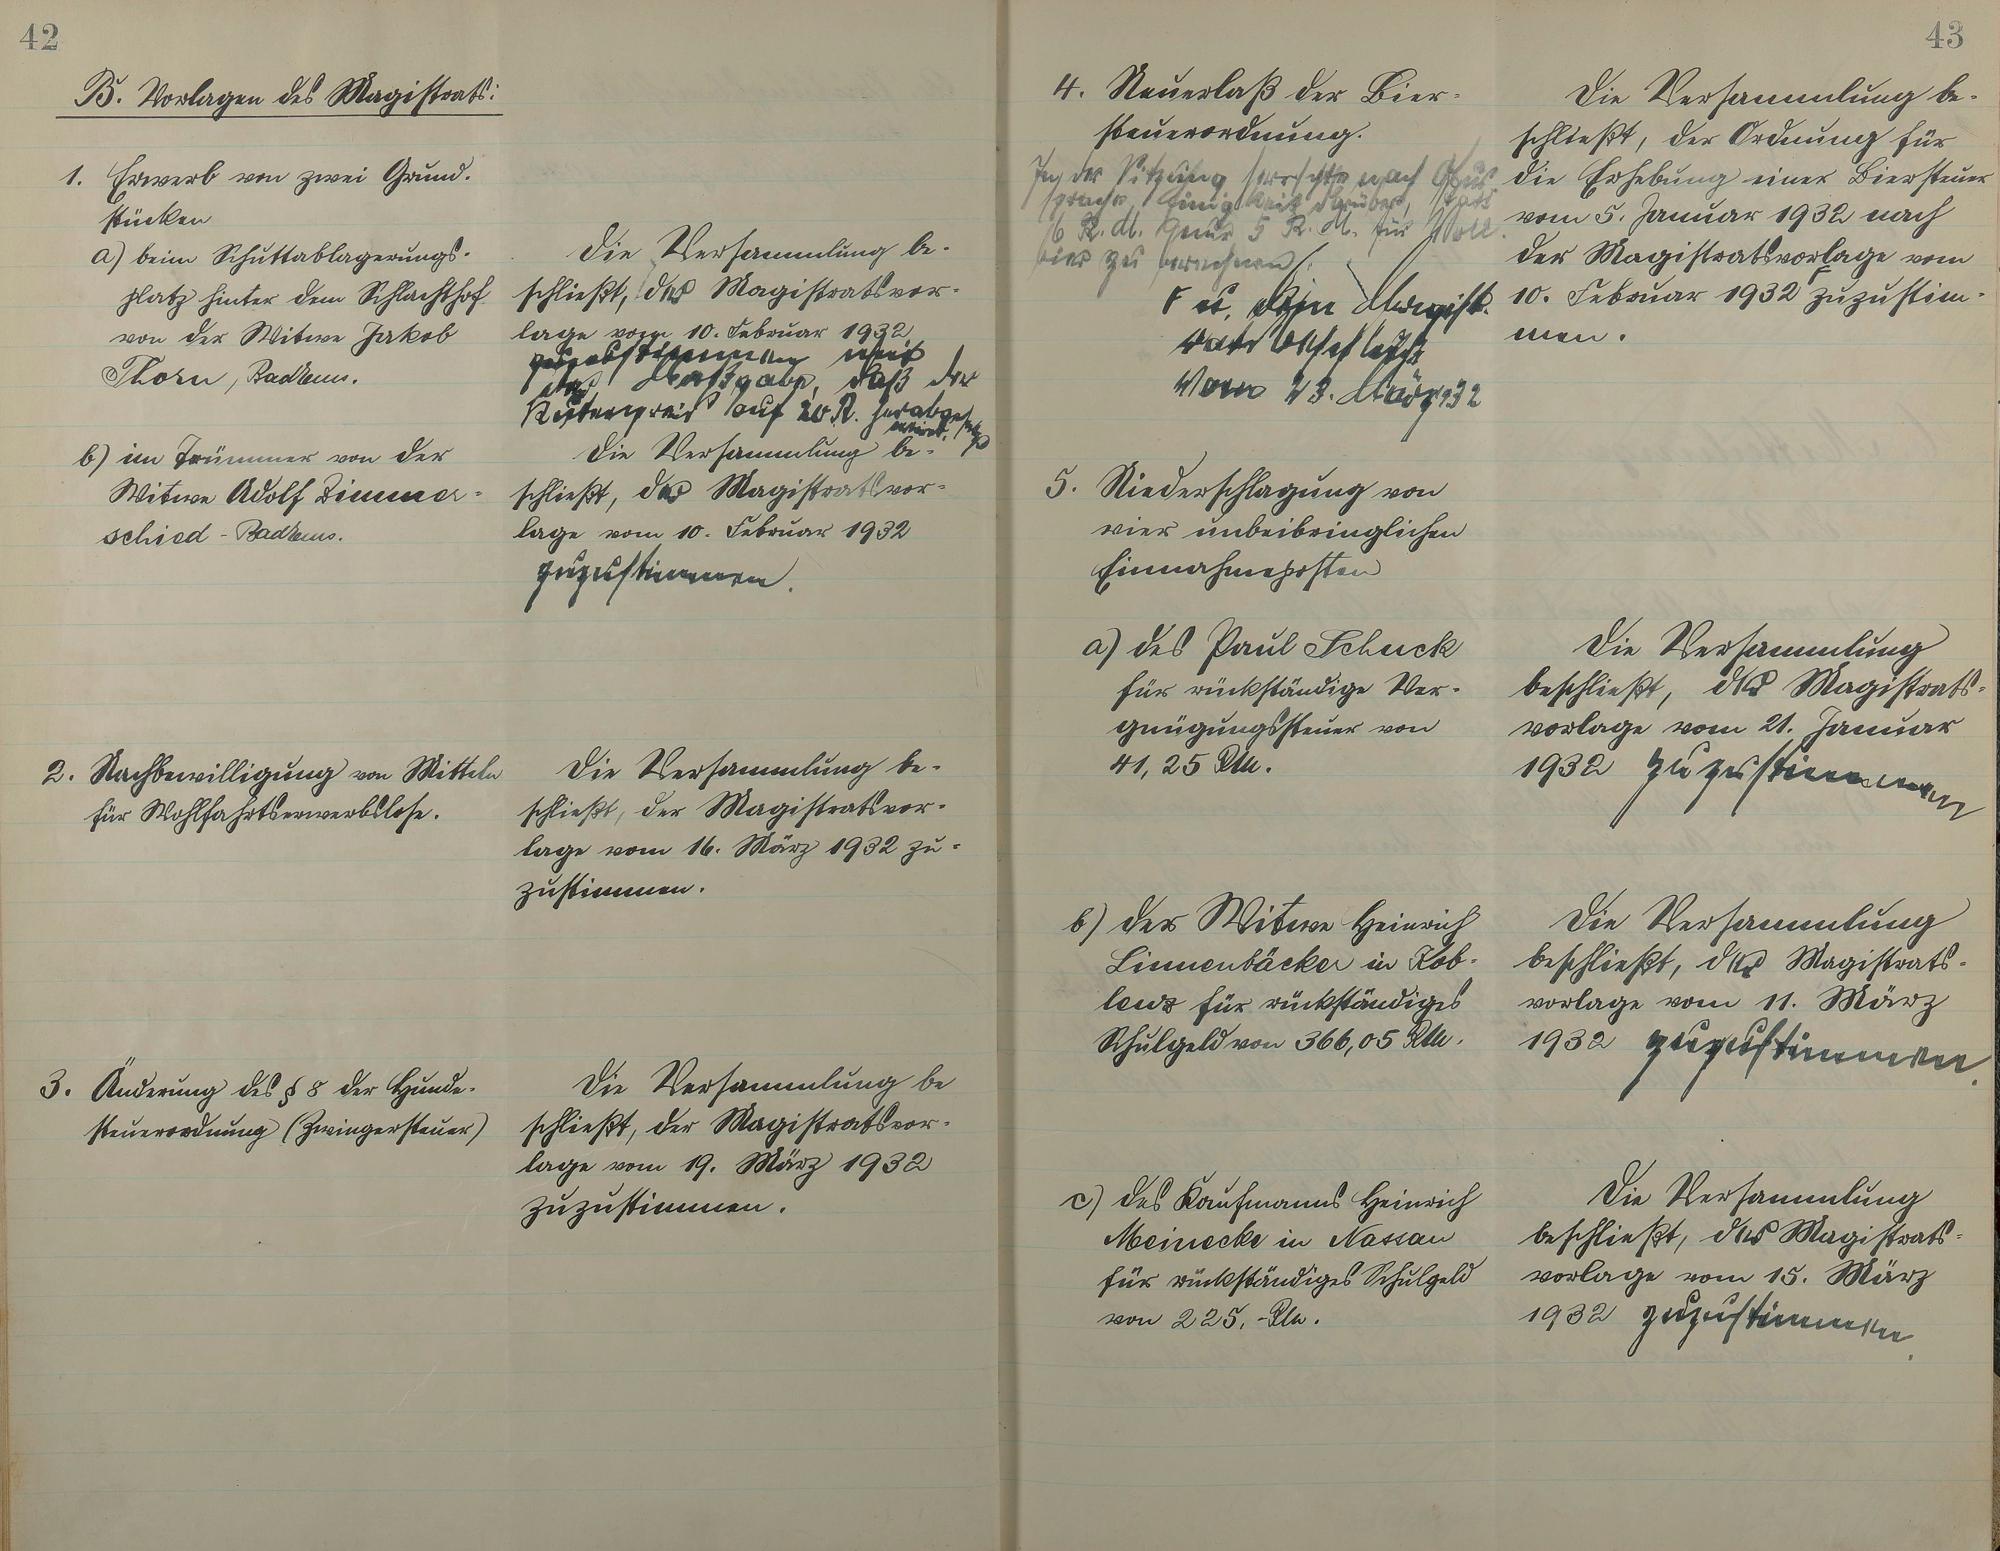 42
B. Vorlagen des Magistrats:
1. Erwerb von zwei Grund-
stücken
a) beim Schuttablagerungs-
platz hinter dem Schlachthof
von der Witwe Jakob
Thorn, Bad Ems.
Die Versammlung be-
schließt, der Magistratsvor-
lage vom 10. Februar 1932
zuzustimmen mit
der Maßgabe, daß der
Rutenpreis auf 20 R. herabgesetzt
wird.
b) im Trümmer von der
Witwe Adolf Zimmer-
schied - Bad Ems.
Die Versammlung be-
schließt, der Magistratsvor-
lage vom 10. Februar 1932
zuzustimmen.
2. Nachbewilligung von Mitteln
für Wohlfahrtserwerbslose.
Die Versammlung be-
schließt, der Magistratsvor-
lage vom 16. März 1932 zu-
zustimmen.
3. Änderung des § 8 der Hunde-
steuerordnung (Zwingersteuer)
Die Versammlung be
schließt, der Magistratsvor-
lage vom 19. März 1932
zuzustimmen.
43
4. Neuerlaß der Bier-
steuerordnung.
In der Sitzung herrschte nach Aus
sprache Einigkeit darüber, statt
6 R. M. nur 5 R. M. für Voll
bier zu berechnen.
F u. dem Magist-
ratsbeschluß
vom 23. März 32
Die Versammlung be-
schließt, der Ordnung für
die Erhebung einer Biersteuer
vom 5. Januar 1932 nach
der Magistratsvorlage vom
10. Februar 1932 F zuzustim-
men.
5. Niederschlagung von
vier unbeibringlichen
Einnahmeposten
a) des Paul Schuck
für rückständige Ver-
gnügungssteuer von
41,25 RM.
Die Versammlung
beschließt, der Magistrats-
vorlage vom 21. Januar
1932 zuzustimmen
b) der Witwe Heinrich
Linnenbäcker in Kob-
lenz für rückständiges
Schulgeld von 366,05 RM.
Die Versammlung
beschließt, der Magistrats-
vorlage vom 11. März
1932 zuzustimmen.
c) des Kaufmanns Heinrich
Meinecke in Nassau
für rückständiges Schulgeld
von 225,- RM.
Die Versammlung
beschließt, der Magistrats-
vorlage vom 15. März
1932 zuzustimmen.